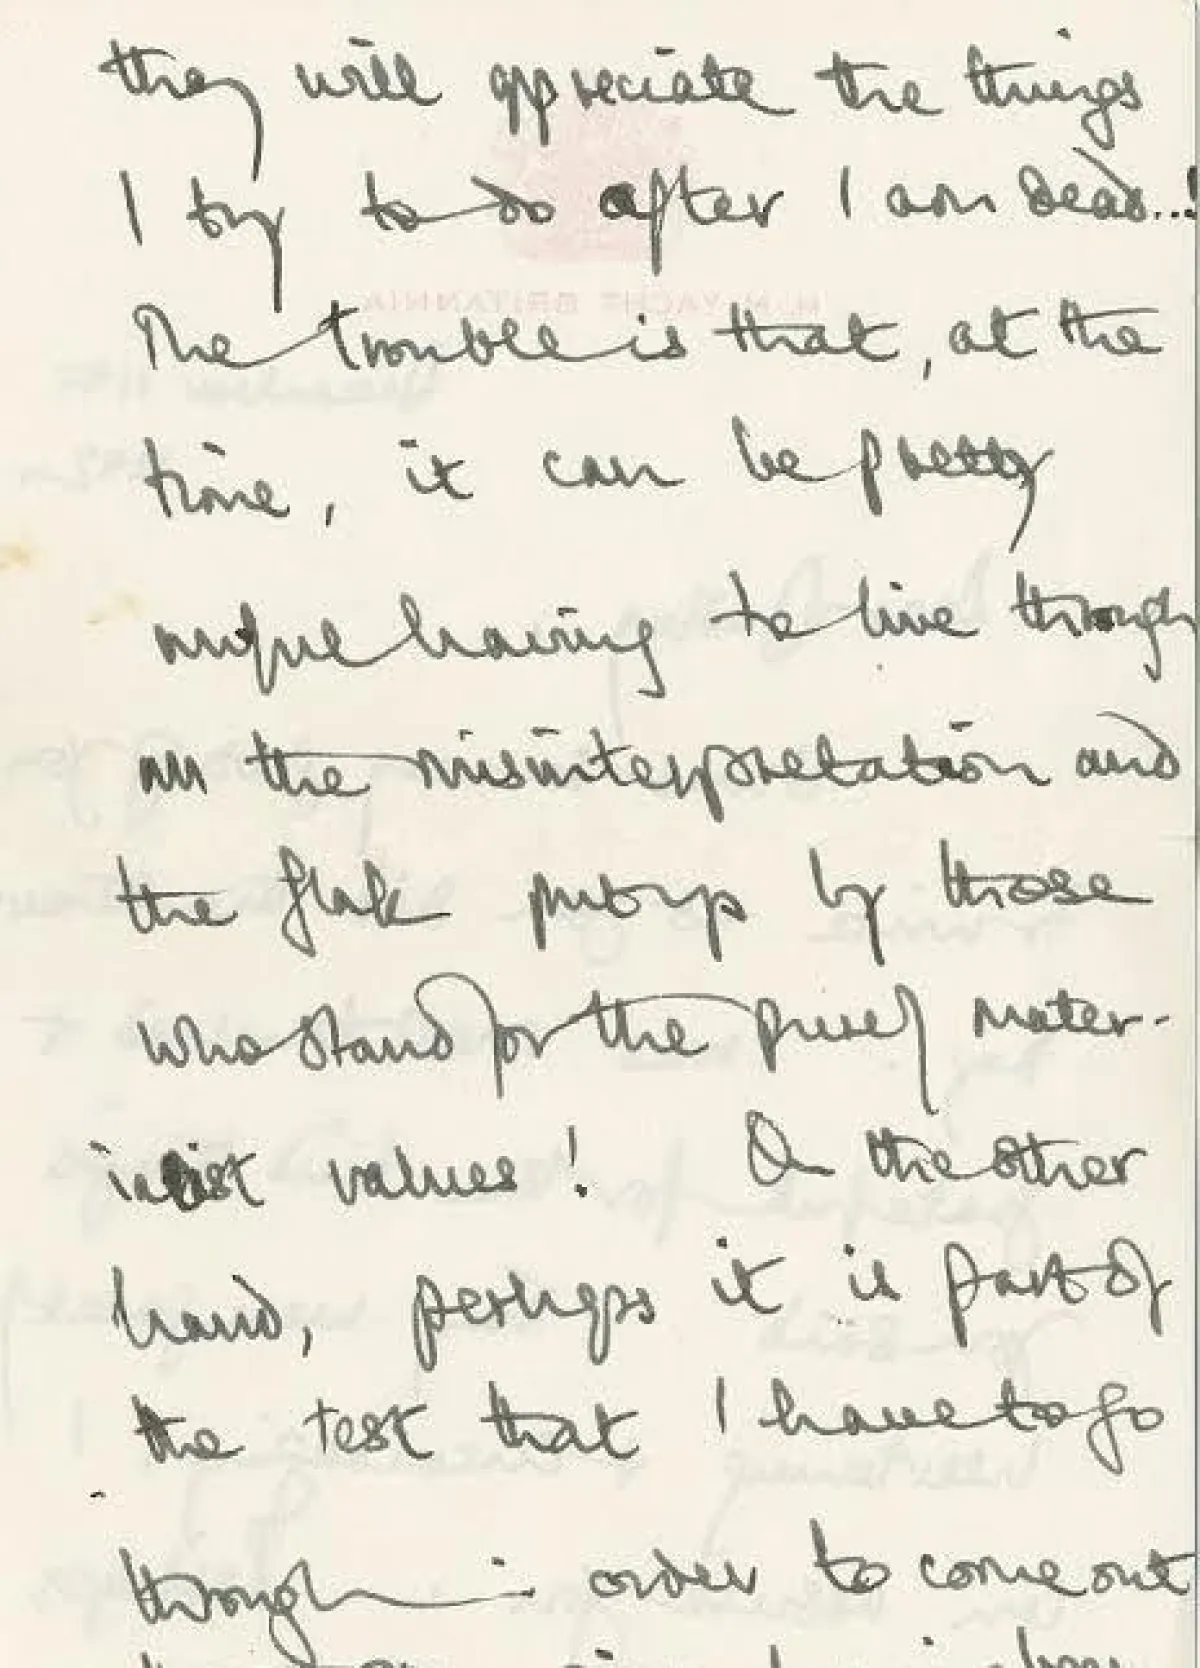 they will appreciate the things
I try to do after I am dead..!
H.M. YACHT BRITANNIA
The trouble is that, at the
time, it can be pretty
having to live through
all the misinterpretation and
the flak put up by those
who stand for the purely mater-
ialist values! On the other
hand, perhaps it is part of
the test that I have to go
through in order to come out